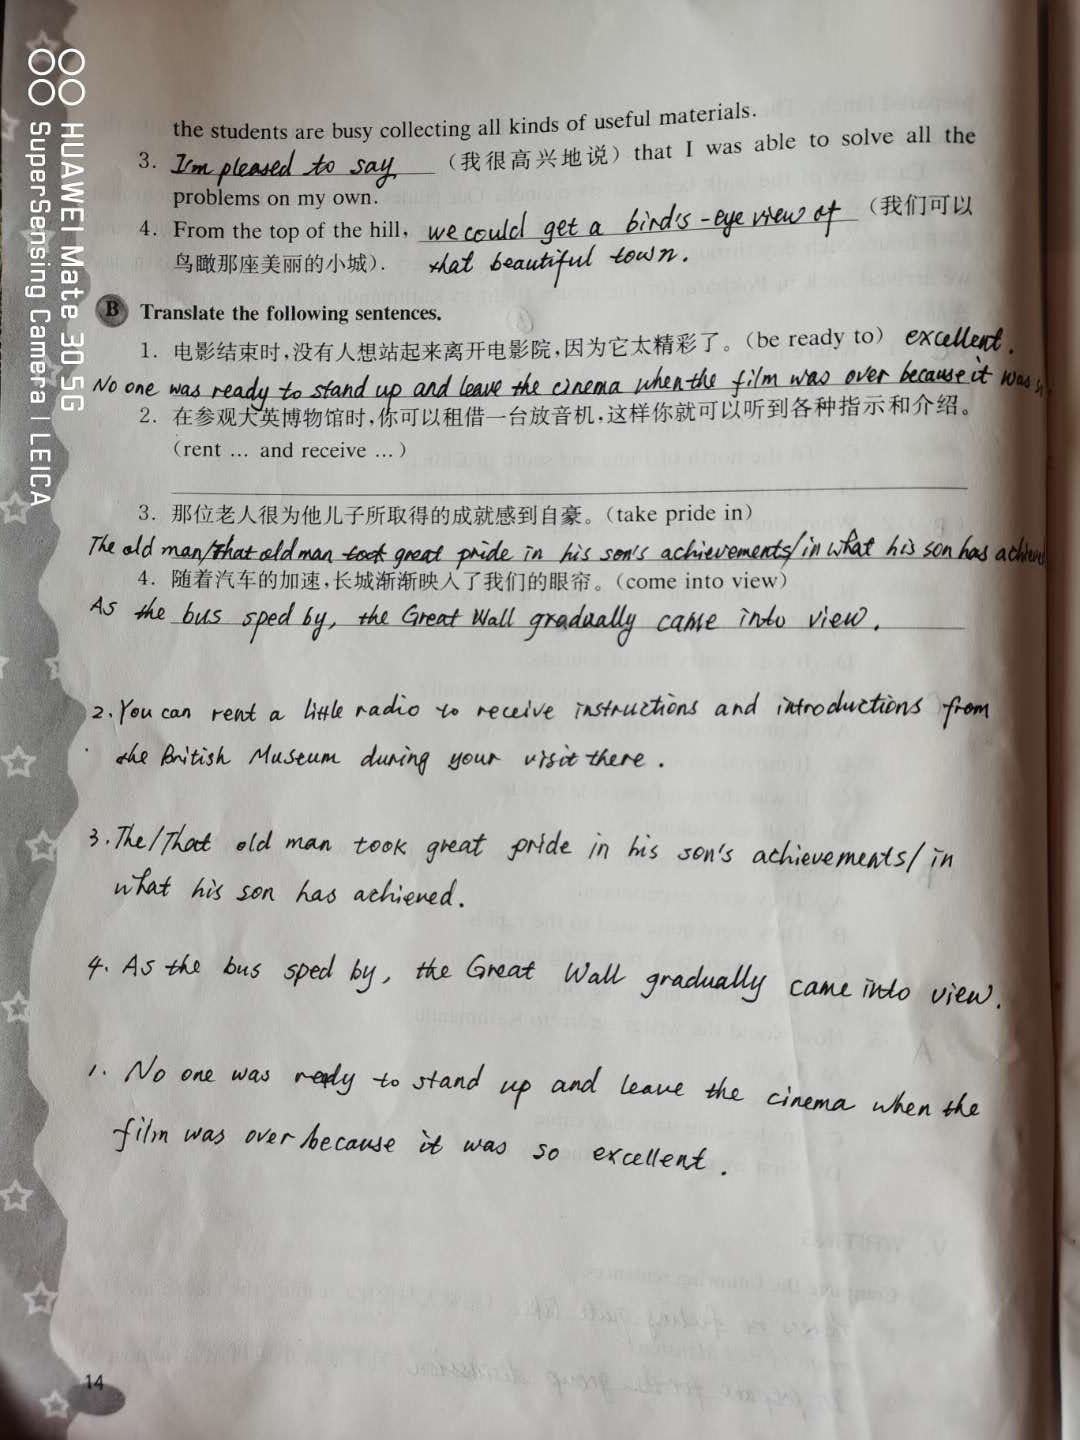 the students are busy collecting all kinds of useful materials.
3. I'm pleased to say （我很高兴地说）that I was able to solve all the
problems on my own.
4. From the top of the hill, we could get a bird's-eye view of （我们可以
鸟瞰那座美丽的小城）. that beautiful town.
B Translate the following sentences.
1. 电影结束时,没有人想站起来离开电影院,因为它太精彩了。（be ready to） excellent.
No one was ready to stand up and leave the cinema when the film was over because it was so
2. 在参观大英博物馆时,你可以租借一台放音机,这样你就可以听到各种指示和介绍。
（rent … and receive …）
3. 那位老人很为他儿子所取得的成就感到自豪。（take pride in）
The old man/That old man took great pride in his son's achievements/in what his son has achieved
4. 随着汽车的加速,长城渐渐映入了我们的眼帘。（come into view）
As the bus sped by, the Great Wall gradually came into view.
2. You can rent a little radio to receive instructions and introductions from
the British Museum during your visit there.
3. The/That old man took great pride in his son's achievements/in
what his son has achieved.
4. As the bus sped by, the Great Wall gradually came into view.
1. No one was ready to stand up and leave the cinema when the
film was over because it was so excellent.
14
HUAWEI Mate 30 5G
SuperSensing Camera | LEICA